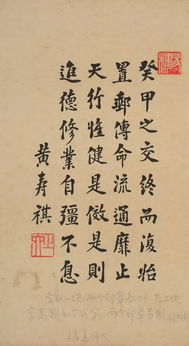 癸甲之交終而復始
置郵傳命流通靡止
天行惟健是傚是則
進德修業自彊不息
黃壽祺